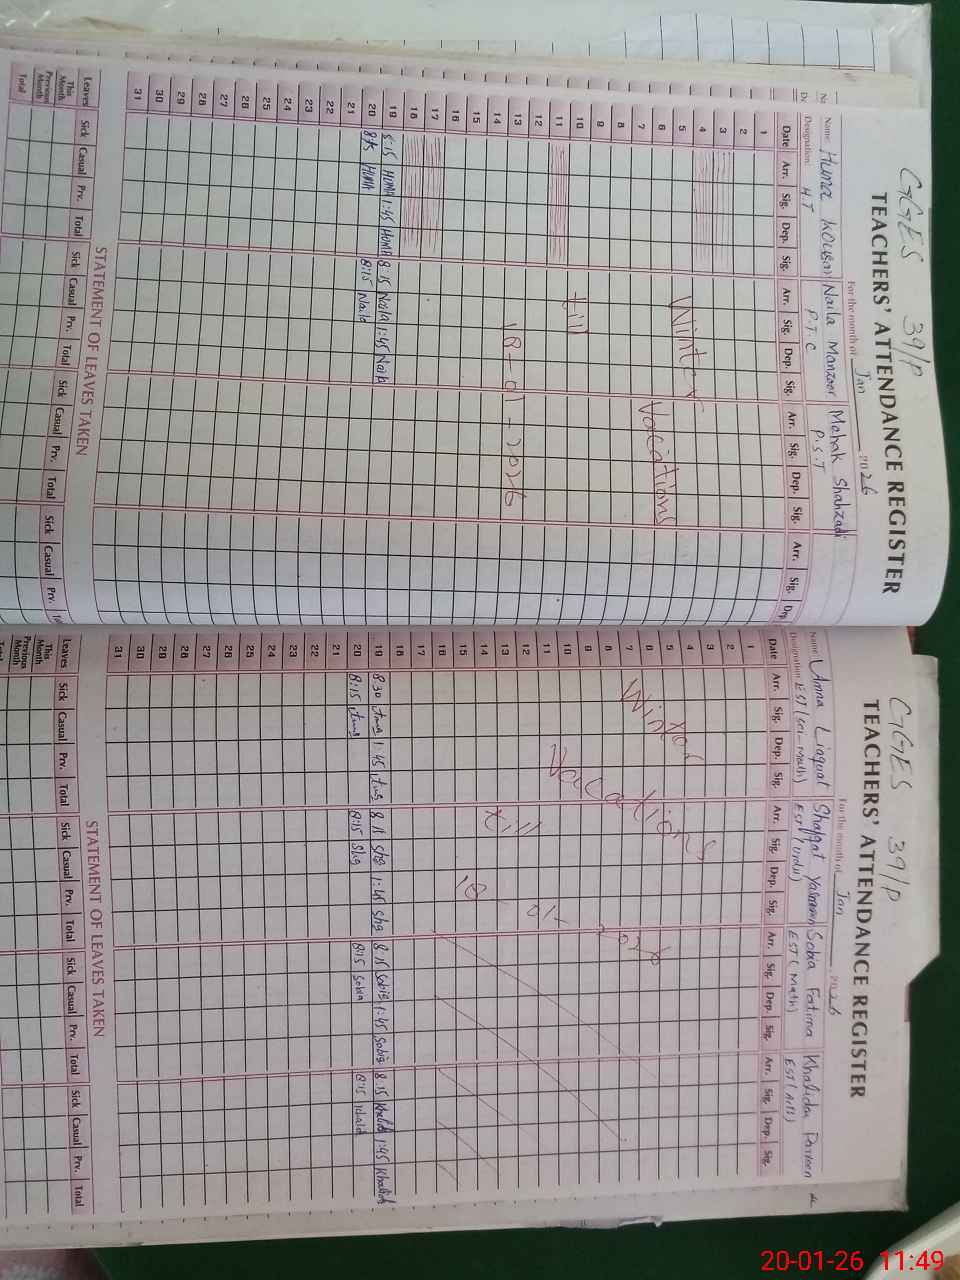 GGES 39/P
TEACHERS' ATTENDANCE REGISTER
For the month of Jan 2026
Name Huma Naila Manzoor Mehak Shahzadi
Designation H.T P.T.C P.S.T
Date Arr. Sig. Dep. Sig. Arr. Sig. Dep. Sig. Arr. Sig. Dep. Sig. Arr. Sig.
1
2
3
4
5
6
7
8
9
10
11
12
13
14
15
16
17
18
19 8:15 HUMA 1:45 HUMA 8:15 Naila 1:45 Naila
20 8:15 HUMA 8:15 Naila
21
22
23
24
25
26
27
28
29
30
31
Winter Vacations
till
18-01-2026
STATEMENT OF LEAVES TAKEN
Leaves Sick Casual Prv. Total Sick Casual Prv. Total Sick Casual Prv. Total Sick Casual Prv.
This Month
Previous Month
Total
GGES 39/P
TEACHERS' ATTENDANCE REGISTER
For the month of Jan 2026
Name Amna Liaqual Shafqat Yasmeen Sobia Fatima Khalida Parveen
Designation EST (Sci-Math) EST (Urdu) EST (Math) EST (Arts)
Date Arr. Sig. Dep. Sig. Arr. Sig. Dep. Sig. Arr. Sig. Dep. Sig. Arr. Sig. Dep. Sig.
1
2
3
4
5
6
7
8
9
10
11
12
13
14
15
16
17
18
19 8:30 1:45 8:15 Shg 1:45 Shg 8:15 Sobia 1:45 Sobia 8:15 Khalida 1:45 Khalida
20 8:15 8:15 Shg 8:15 Sobia 8:15 Khalida
21
22
23
24
25
26
27
28
29
30
31
Winter
Vacations
till
18-01-2026
STATEMENT OF LEAVES TAKEN
Leaves Sick Casual Prv. Total Sick Casual Prv. Total Sick Casual Prv. Total Sick Casual Prv. Total
This Month
Previous Month
Total
20-01-26 11:49